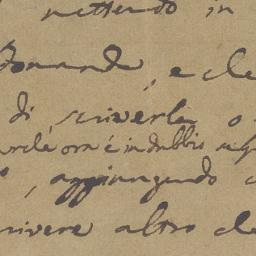 mettendo in
Domande, e che
di scriverla o
ora è in dubbio
, aggiungendo
scrivere altro che